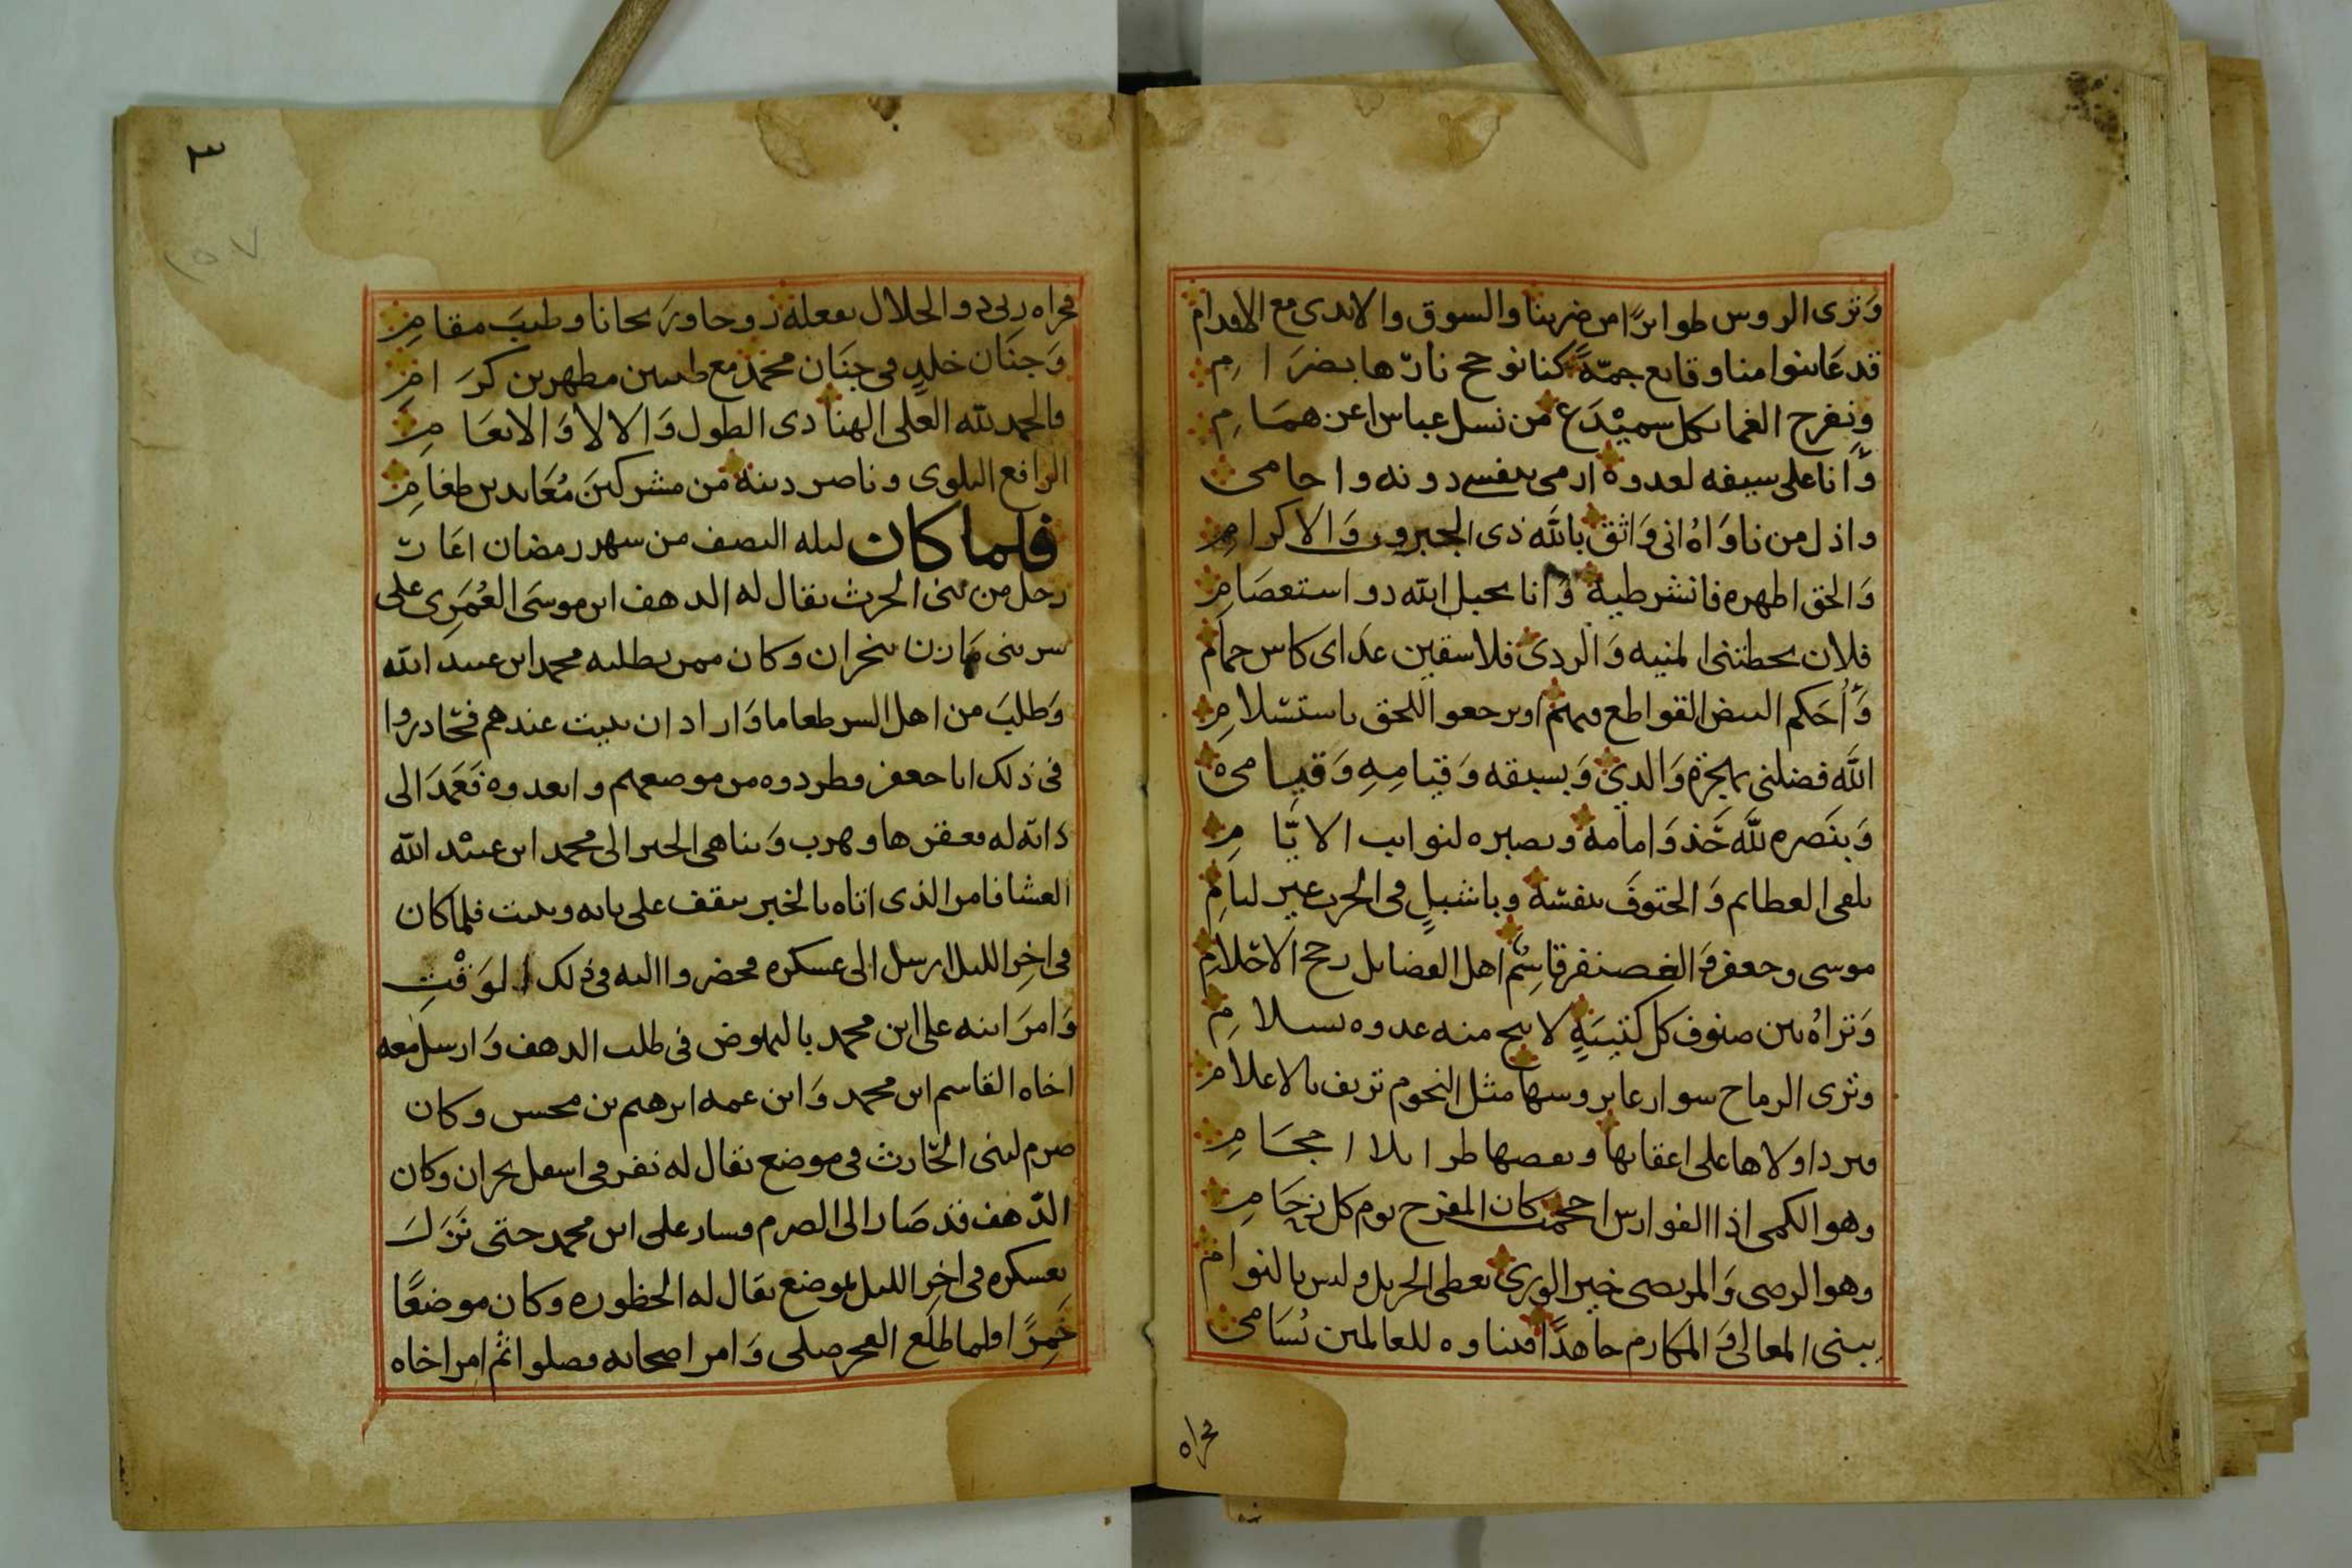 وَترى الروس طوايرًا من ضربنا والسوق والايدى مع الاقدام
قد عَاينوا منا وقايع جمّةً كنا نوجج نارّها بضرَامِ
ونفرح الغما بكل سميْدَع من نسل عباس اعن همَامِ
وَانا على سيفه لعدوه ارمى بنفسے دونه واحامى
واذل من ناوَاهُ انى وَاثق بالله ذى الجبروت وَالاكرامِ
وَالحق اطهره فانشر طيه وَانا بحبل الله ذو استعصَامِ
فلان تحطتنى المنيه وَالردى فلاسقين عدَاى كاس حمام
وَأُحَكم البيض القواطع فيهم او يرجعو اللحق باستسلامِ
اللَّه فضلنى بهجرة وَالدي وَبسبقه وَقيامِهِ وَقيامى
وَبنَصره للَّه وَامامه وبصبره لنوايب الايَّامِ
يلقى العطايم وَالحتوفَ بنفسه وباشبلٍ فى الحرب غير ليامِ
موسى وجعفر وَالغضنفر قاسِمٌ اهل الفضايل رجح الاحْلامِ
وَتراهُ بين صفوف كل كتيبَةٍ لا ينج منه عدوه بسلامِ
وترى الرماح سوارعا بروسها مثل النجوم تزيف بالاعلام
ويرد اولاها على اعقابها وبعصها طرا بلا احجَامِ
وهو الكمى اذا الفوارس احجمت كان المفرح يوم كل زحَامِ
وهو الرصى وَالمرتصى خير الورى يعطى الجزيل وليس بالنوام
يبنى المعالى وَالمكارم جاهدًا فبناوه للعالمين تسَامى
فجزاه
٣
١٥٧
فجزاه ربى ذو الجلال بفعله روحا ورَيحانا وطيبَ مقامِ
وَجنَان خلدٍ فى جنَان محمَّدٍ مع طيبين مطهرين كرَامِ
والحمد لله العلى الهنا ذى الطول وَالالا وَالانعَامِ
الرافع البلوى وناصر دينه من مشركينَ مُعَاندين طغامِ
فلما كان ليله النصف من سهر رمضان اغات
رجل من بنى الحرث يقال له الدهف ابن موسَى العُمَرِى على
سر بنى مازن بنجران وكان ممن يطلبه محمد ابن عبيد الله
وَطلبَ من اهل السر طعاما وَاراد ان يبيت عندهم فتحادروا
فى ذلك ابا جعفر وطردوه من موضعهم وابعدوه فَعَمَدَ الى
دابّه له فعقرها وهرب وَتناهى الخبر الى محمد ابن عبيْد الله
العشا فامر الذى اتاه بالخبر يقف على بابه ويبيت فلما كان
فى اخِر الليل ارسل الى عسكره فحضروا اليه فى ذلك الوَقْتِ
وَامرَ ابنه على ابن محمد بالنهوض فى طلب الدهف وَارسل معه
اخاه القاسم ابن محمد وَابن عمه ابرهيم بن محسن وكان
صرم لبنى الحَارث فى موضع يقال له نفر فى اسفل نجران وكان
الدّهف قد صَار الى الصرم فسار على ابن محمد حتى نَزَلَ
بعسكره فى اخر الليل بموضع يقال له الحظوره وكان موضعًا
خَمِرًا فلما طلَع الفجر صلى وَامر اصحابه فصلوا ثم امر اخاه